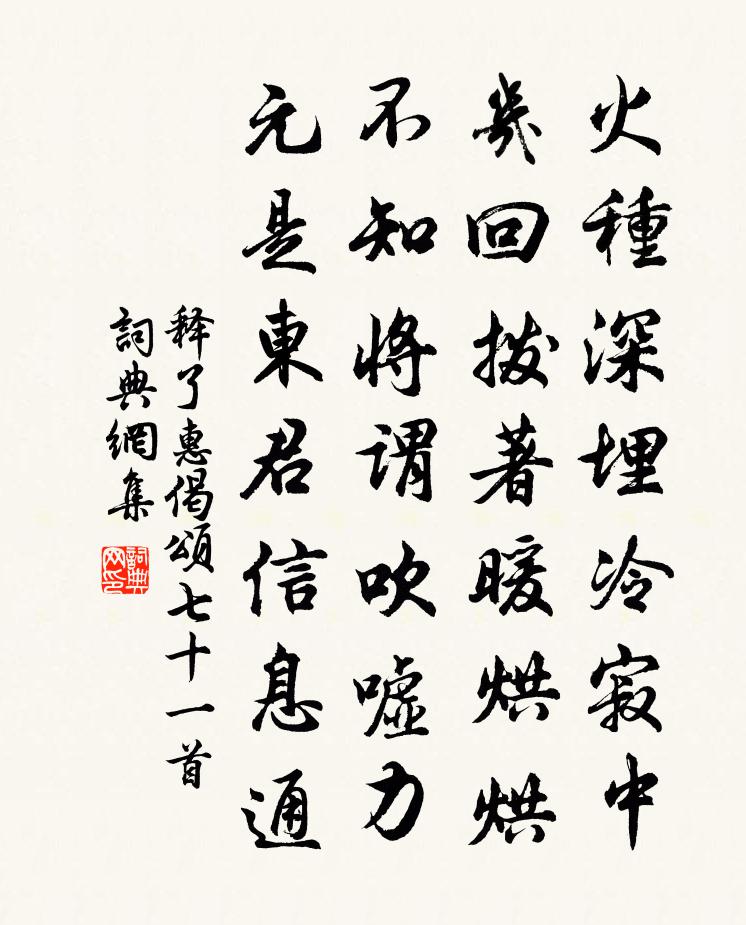 火種深埋冷寂中
幾回拨著暖烘烘
不知將謂吹噓力
元是東君信息通
释了惠偈頌七十一首
詞典網集
詞典網印